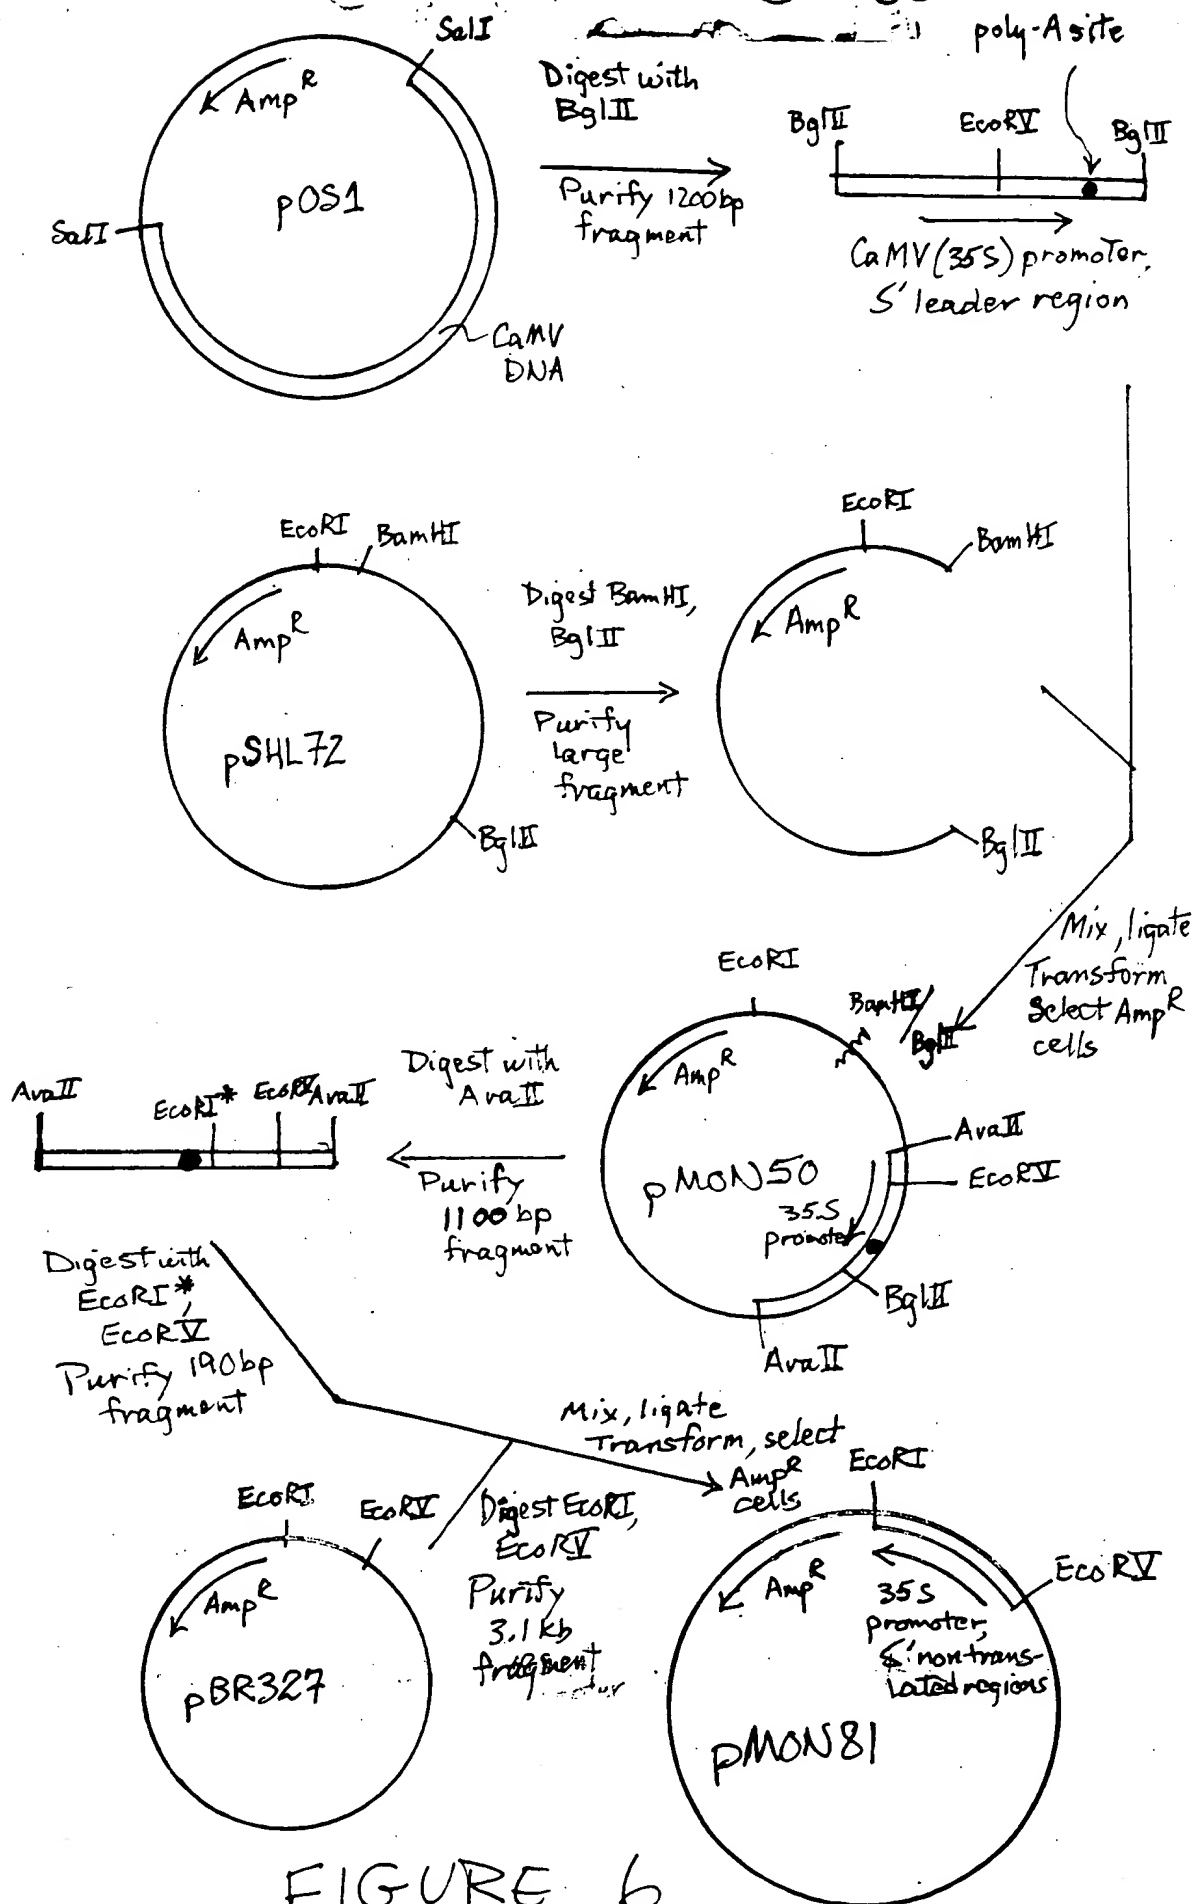 SalI
Amp R
pOS1
SalI
CaMV
DNA
Digest with
BglII
Purify 1200bp
fragment
poly-A site
BglII
EcoRV
BglII
CaMV(35S) promoter,
5' leader region
EcoRI
BamHI
Amp R
pSHL72
BglII
Digest BamHI,
BglII
Purify
large
fragment
EcoRI
BamHI
Amp R
BglII
Mix, ligate
Transform
Select Amp R
cells
EcoRI
BamHI/
BglII
Amp R
AvaII
EcoRV
pMON50
35S
promoter
BglII
AvaII
Digest with
AvaII
Purify
1100bp
fragment
AvaII
EcoRI*
EcoRV
AvaII
Digest with
EcoRI*,
EcoRV
Purify 190bp
fragment
Mix, ligate
Transform, select
Amp R
cells
EcoRI
EcoRV
Amp R
pBR327
Digest EcoRI,
EcoRV
Purify
3.1kb
fragment
EcoRI
EcoRV
Amp R
35S
promoter,
5' nontrans-
lated regions
pMON81
FIGURE 6